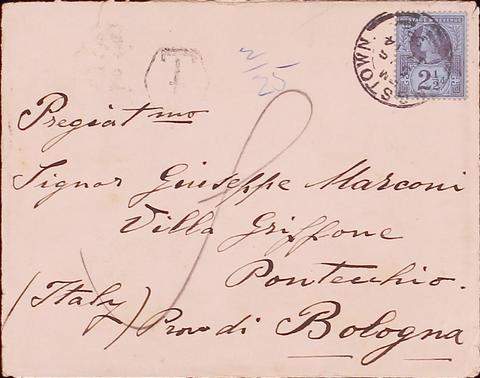 T
2/25
2½
Pregiatmo
Signor Giuseppe Marconi
Villa Griffone
Pontecchio.
(Italy) Prov di Bologna